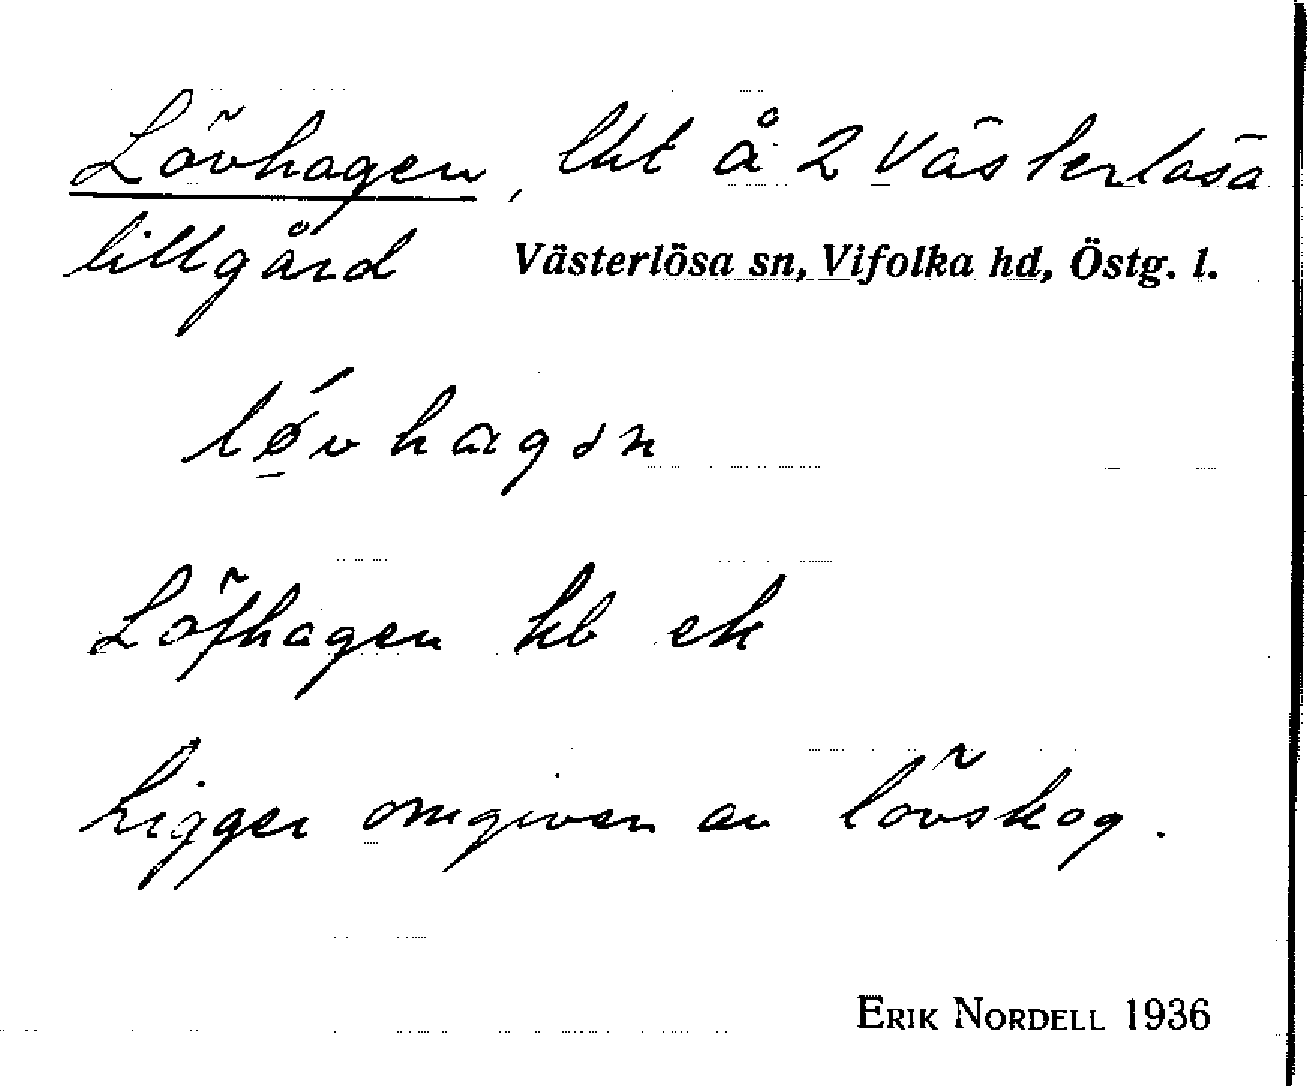 Lövhagen, lht å 2 Västerlösa
lillgård Västerlösa sn, Vifolka hd, Östg. l.
lǿ̱v hagən
Löfhagen kb ek
Ligger omgiven av lövskog.
ERIK NORDELL 1936